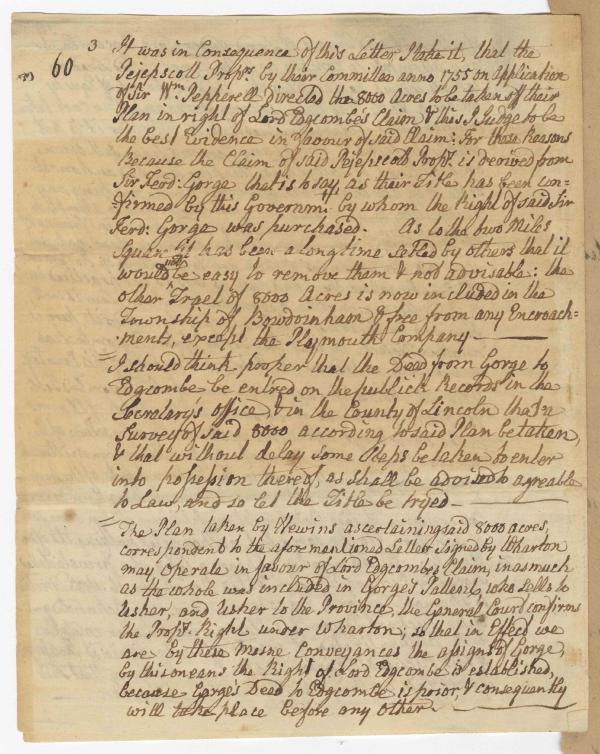 3 It was in Consequence of this Letter I take it, that the
60 Pejepscott Proprs by their Committee anno 1755 on application
of Sir Wm Pepperell directed the 8000 Acres to be taken off their
Plan in right of Lord Edgcombes Claim & this I Judge to be
the best Evidence in favour of said Claim: For those Reasons
Because the Claim of said Pejepscott Proprs is derived from
Sir Ferd: Gorge that is to say, as their Title has been con=
=firmed by this Governmt by whom the Right of said Sir
Ferd: Gorge was purchased. As to the two Miles
Square it has been a long time setled by others that it
would not be easy to remove them & not advisable: the
other Trget of 8000 Acres is now included in the
Township of Bowdoinham & free from any Encroach=
=ments, except the Plymouth Company
= I should think proper that the Deed from Gorge to
Edgcombe be entred on the publick Records in the
Secretary's office, & in the County of Lincoln that a
Survey of said 8000 according to said Plan be taken,
& that without delay some steps be taken to enter
into possession thereof, as shall be advised to agreable
to Law, and so let the Title be tryed
= The Plan taken by Hewins ascertaining said 8000 acres,
correspondent to the aforementioned Letter signed by Wharton
may Operate in favour of Lord Edgcombes Claim, in as much
as the whole was included in Gorge's Pattent, who sells to
Usher, and Usher to the Province, the General Court confirms
the Proprs Right under Wharton; so that in Effect we
are by these mesne Conveyances the assigns of Gorge,
by this means the Right of Lord Edgcombe is established,
because Gorges Deed to Edgcombe is prior, & consequently
will take place before any other.